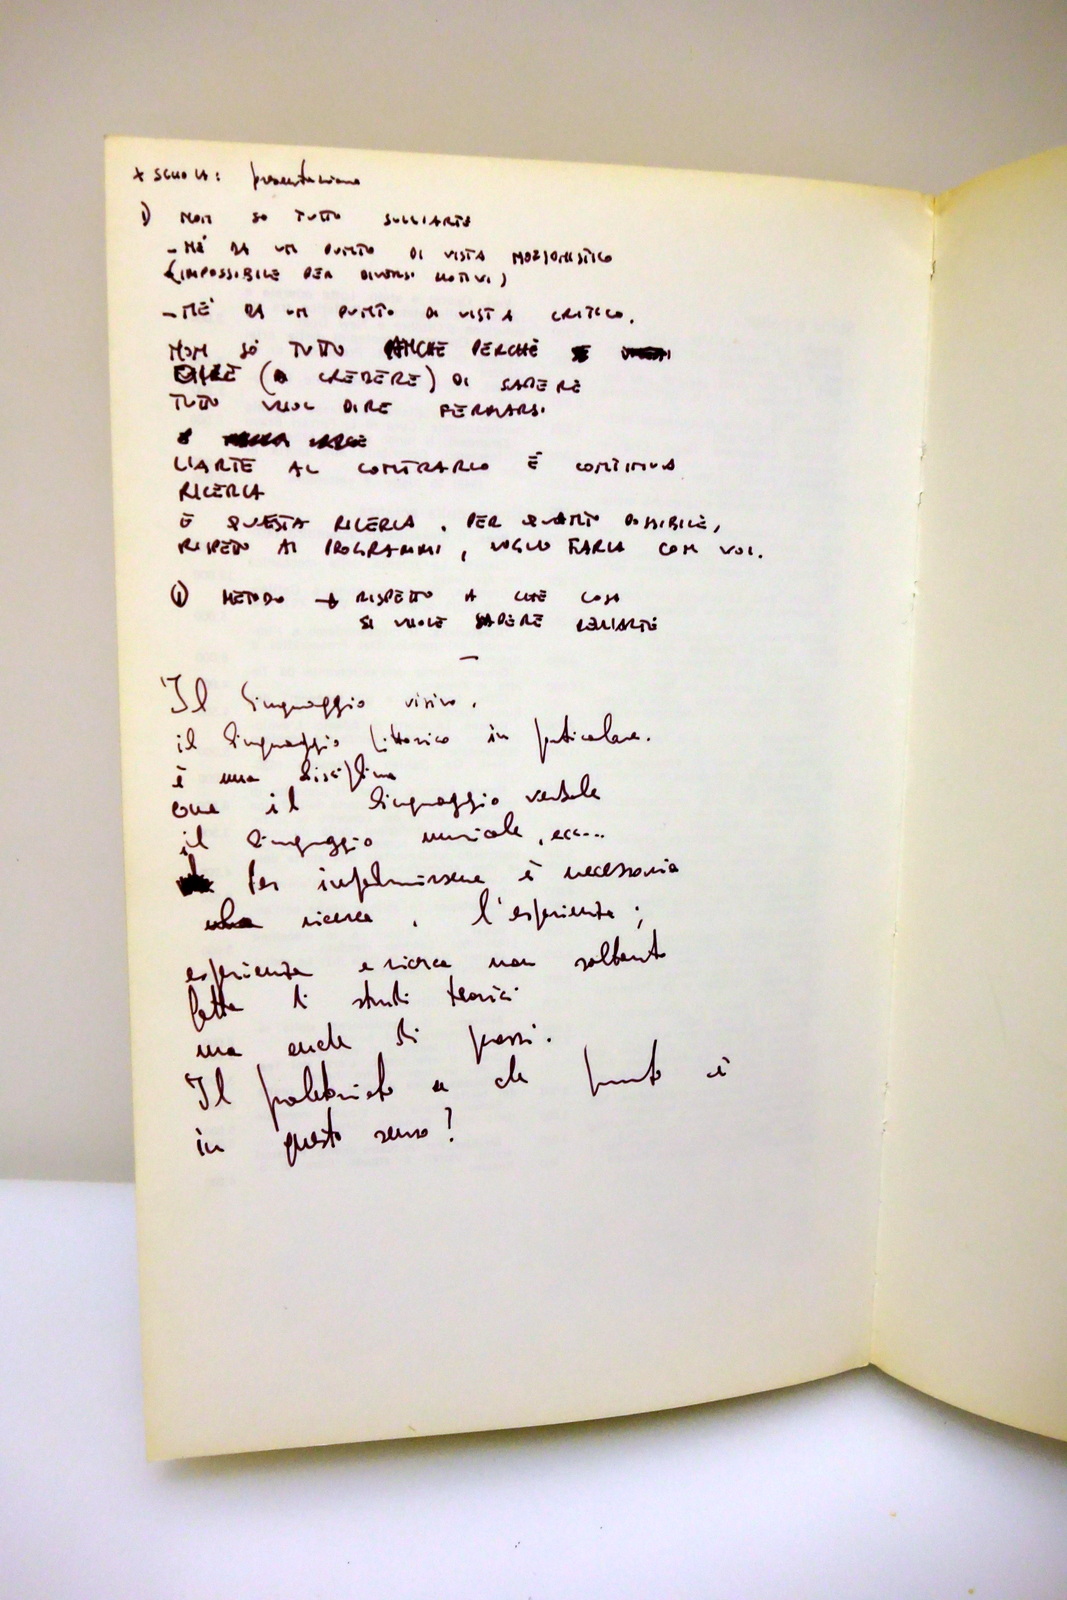 x SCUOLA: presentazione
1) NON SO TUTTO SULL'ARTE
- NÉ DA UN PUNTO DI VISTA NOZIONISTICO
(IMPOSSIBILE PER DIVERSI MOTIVI)
- NÉ DA UN PUNTO DI VISTA CRITICO.
NON SÒ TUTTO ANCHE PERCHÈ
(O CREDERE) DI SAPERE
TUTTO VUOL DIRE FERMARSI
L'ARTE AL CONTRARIO È CONTINUA
RICERCA
E QUESTA RICERCA, PER QUANTO POSSIBILE,
RISPETTO AI PROGRAMMI, VOGLIO FARLA CON VOI.
METODO → RISPETTO A CHE COSA
SI VUOLE SAPERE DELL'ARTE
—
Il linguaggio visivo.
il linguaggio pittorico in particolare.
è una disciplina
come il linguaggio verbale
il linguaggio musicale, ecc...
Per impadronirsene è necessaria
ricerca, l'esperienza;
esperienza e ricerca non soltanto
fatta di studi teorici
ma anche di prassi.
Il proletariato a che punto è
in questo senso?